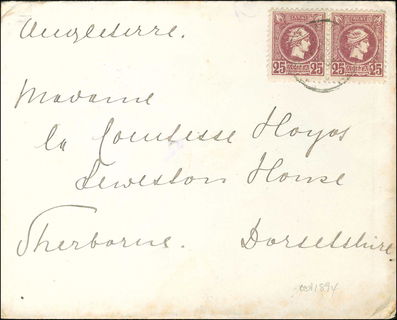 Angleterre.
25 25 25 25
Madame
la Comtesse Hoyos
Leweston House
Sherborne. Dorsetshire
oct 1894